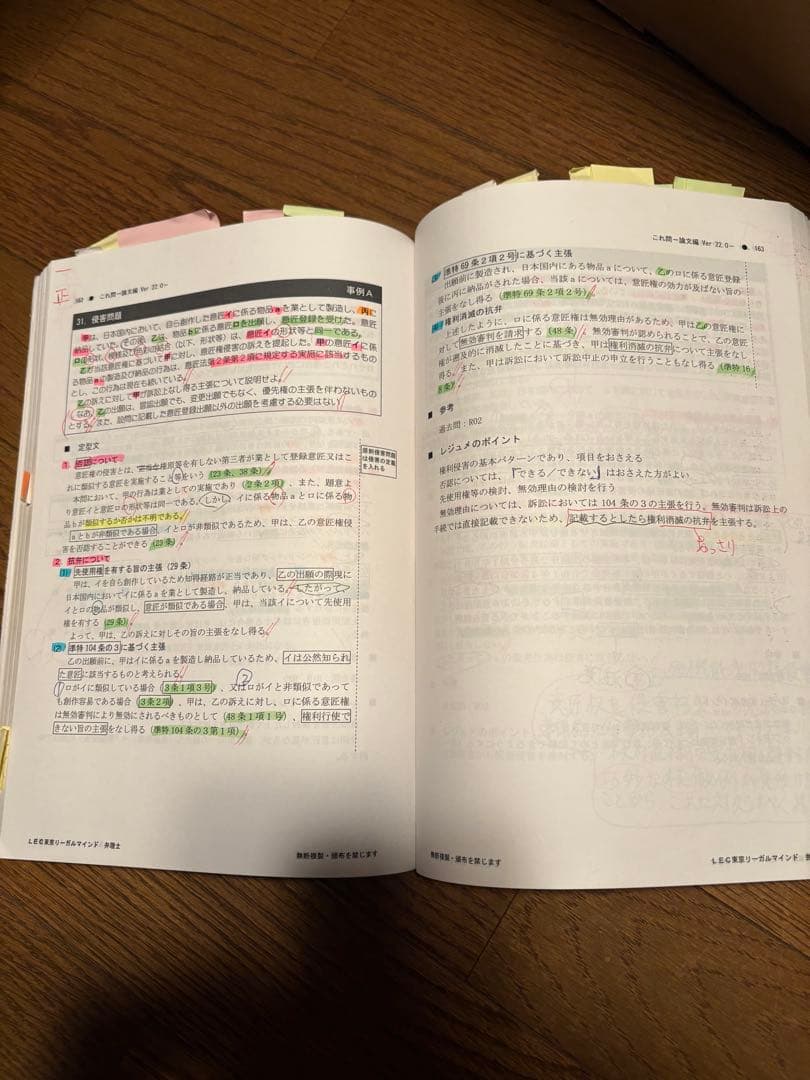 一
正
162 ● これ問ー論文編 Ver 22.0ー
事例A
31. 侵害問題
甲は、日本国内において、自ら創作した意匠イに係る物品aを業として製造し、丙に
納品していた。その後、乙は、物品bに係る意匠ロを出願し、意匠登録を受けた。意匠
ロは、形状、模様及び色彩の結合(以下、形状等)は、意匠イの形状等と同一である。
乙が当該意匠権に基づて甲に対し、意匠権侵害の訴えを提起した。甲の意匠イに係
る物品aに製造及び納品の行為は、意匠法第2条第2項に規定する実施に該当するもの
とし、この行為は現在も続いている。
乙の訴えに対して甲が訴訟上なし得る主張について説明せよ。
なお、乙の出願は、冒認出願でもなく、優先権の主張を伴わないもの
とする。また、設問に記載した意匠登録出願以外の出願を考慮する必要はない。
■ 定型文
1. 否認について
意匠権の侵害とは、正当権原等を有しない第三者が業として登録意匠又はこ
れに類似する意匠を実施すること等をいう(23条、38条)。
本問において、甲の行為は業としての実施であり(2条2項)、また、題意よ
り意匠イと意匠ロの形状等は同一である。しかし、イに係る物品aとロに係る物
品bが類似するか否かは不明である。
aとbが非類似である場合、イとロが非類似であるため、甲は、乙の意匠権侵
害を否認することができる(23条)。
意匠権侵害問題
は侵害の定義
を入れる
2. 抗弁について
(1) 先使用権を有する旨の主張(29条)
甲は、イを自ら創作しているため知得経路が正当であり、乙の出願の際現に
日本国内においてイに係るaを業として製造し、納品している。したがって、
イとロの物品が類似し、意匠が類似である場合、甲は、当該イについて先使用
権を有する(29条)。
よって、甲は、乙の訴えに対しその旨の主張をなし得る。
(2) 準特104条の3に基づく主張
乙の出願前に、甲はイに係るaを製造し納品しているため、イは公然知られ
た意匠に該当するものと考えられる。
①ロがイに類似している場合(3条1項3号)、又は②ロがイと非類似であって
も創作容易である場合(3条2項)、甲は、乙の訴えに対し、ロに係る意匠権
は無効審判により無効にされるべきものとして(48条1項1号)、権利行使で
きない旨の主張をなし得る(準特104条の3第1項)。
LEC東京リーガルマインド 弁理士
無断複製・頒布を禁じます
これ問ー論文編 Ver 22.0ー ● 163
(3) 準特69条2項2号に基づく主張
出願前に製造され、日本国内にある物品aについて、乙のロに係る意匠登録
後に丙に納品がされた場合、当該aについては、意匠権の効力が及ばない旨の
主張をなし得る(準特69条2項2号)。
(4) 権利消滅の抗弁
上述したように、ロに係る意匠権は無効理由があるため、甲は乙の意匠権に
対して無効審判を請求する(48条)。無効審判が認められることで、乙の意匠
権が遡及的に消滅したことに基づき、甲は権利消滅の抗弁について主張をなし
得る。また、甲は訴訟において訴訟中止の申立を行うこともなし得る(準特16
8条)。
■ 参考
過去問:R02
■ レジュメのポイント
権利侵害の基本パターンであり、項目をおさえる
否認については、「できる/できない」はおさえた方がよい
先使用権等の検討、無効理由の検討を行う
無効理由については、訴訟においては104条の3の主張を行う。無効審判は訴訟上の
手続では直接記載できないため、記載するとしたら権利消滅の抗弁を主張する。
あっさり
無断複製・頒布を禁じます
LEC東京リーガルマインド